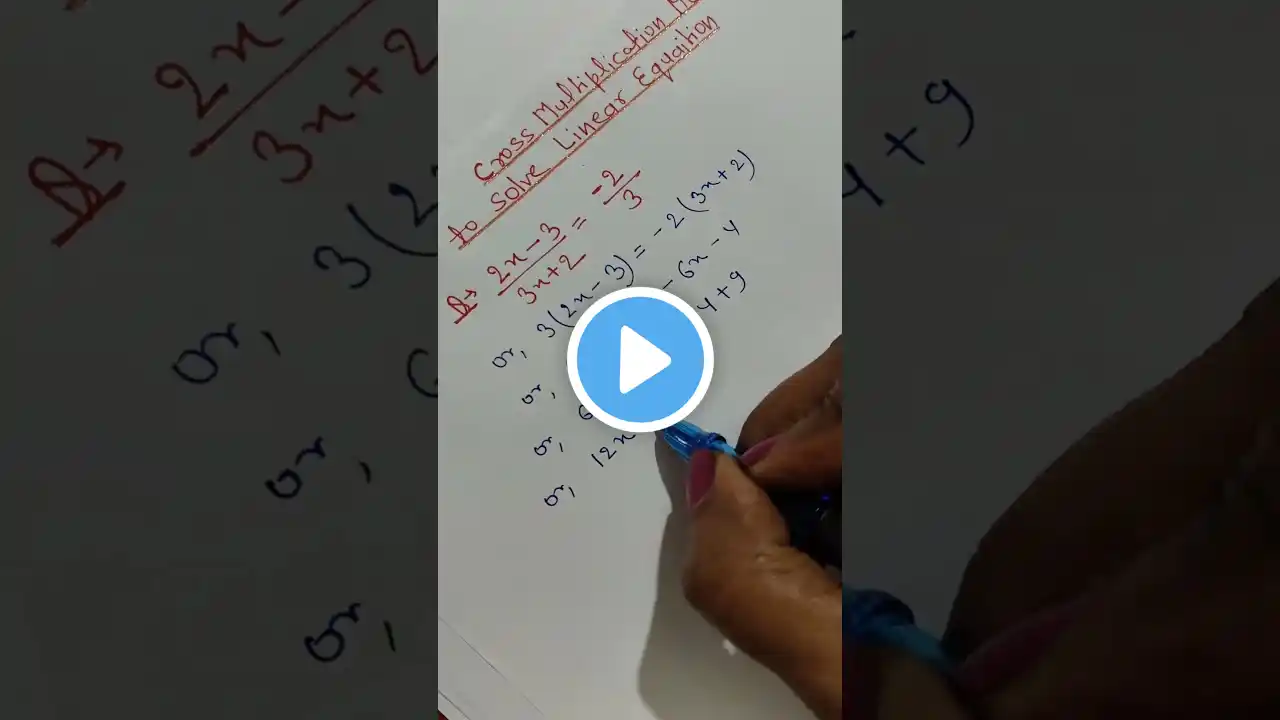 Cross Multiplication
to solve Linear Equaition
Q→ (2x-3)/(3x+2) = -2/3
or, 3(2x-3) = -2(3x+2)
or, - 6x - 4
or, 6 4+9
or, 12x